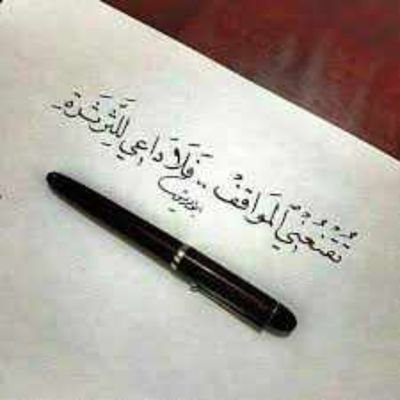 تُقْنِعُنِي ٱلمَوَاقِفُ .. فَلَا دَاعِي لِلثَّرْثَرَةِ.